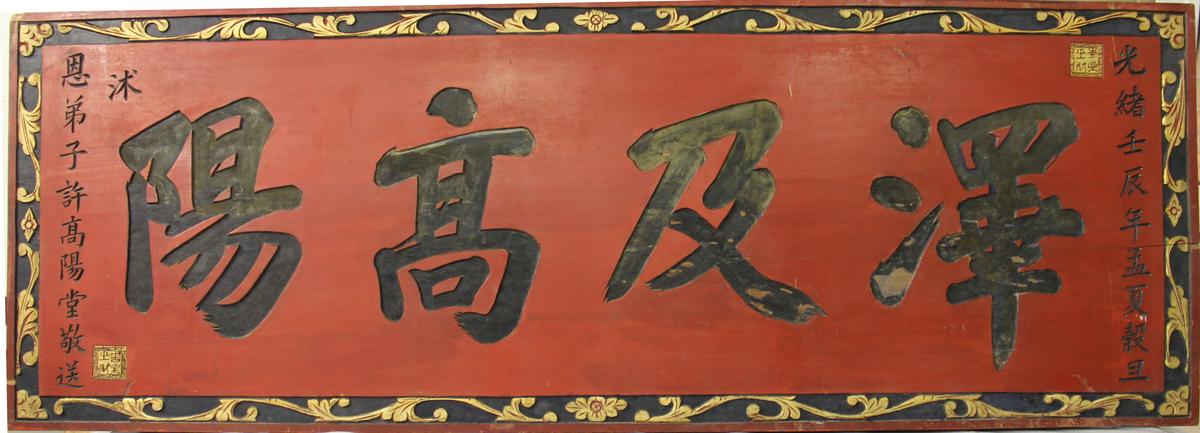 光緒壬辰年孟夏穀旦
澤及高陽
沐
恩弟子許高陽堂敬送